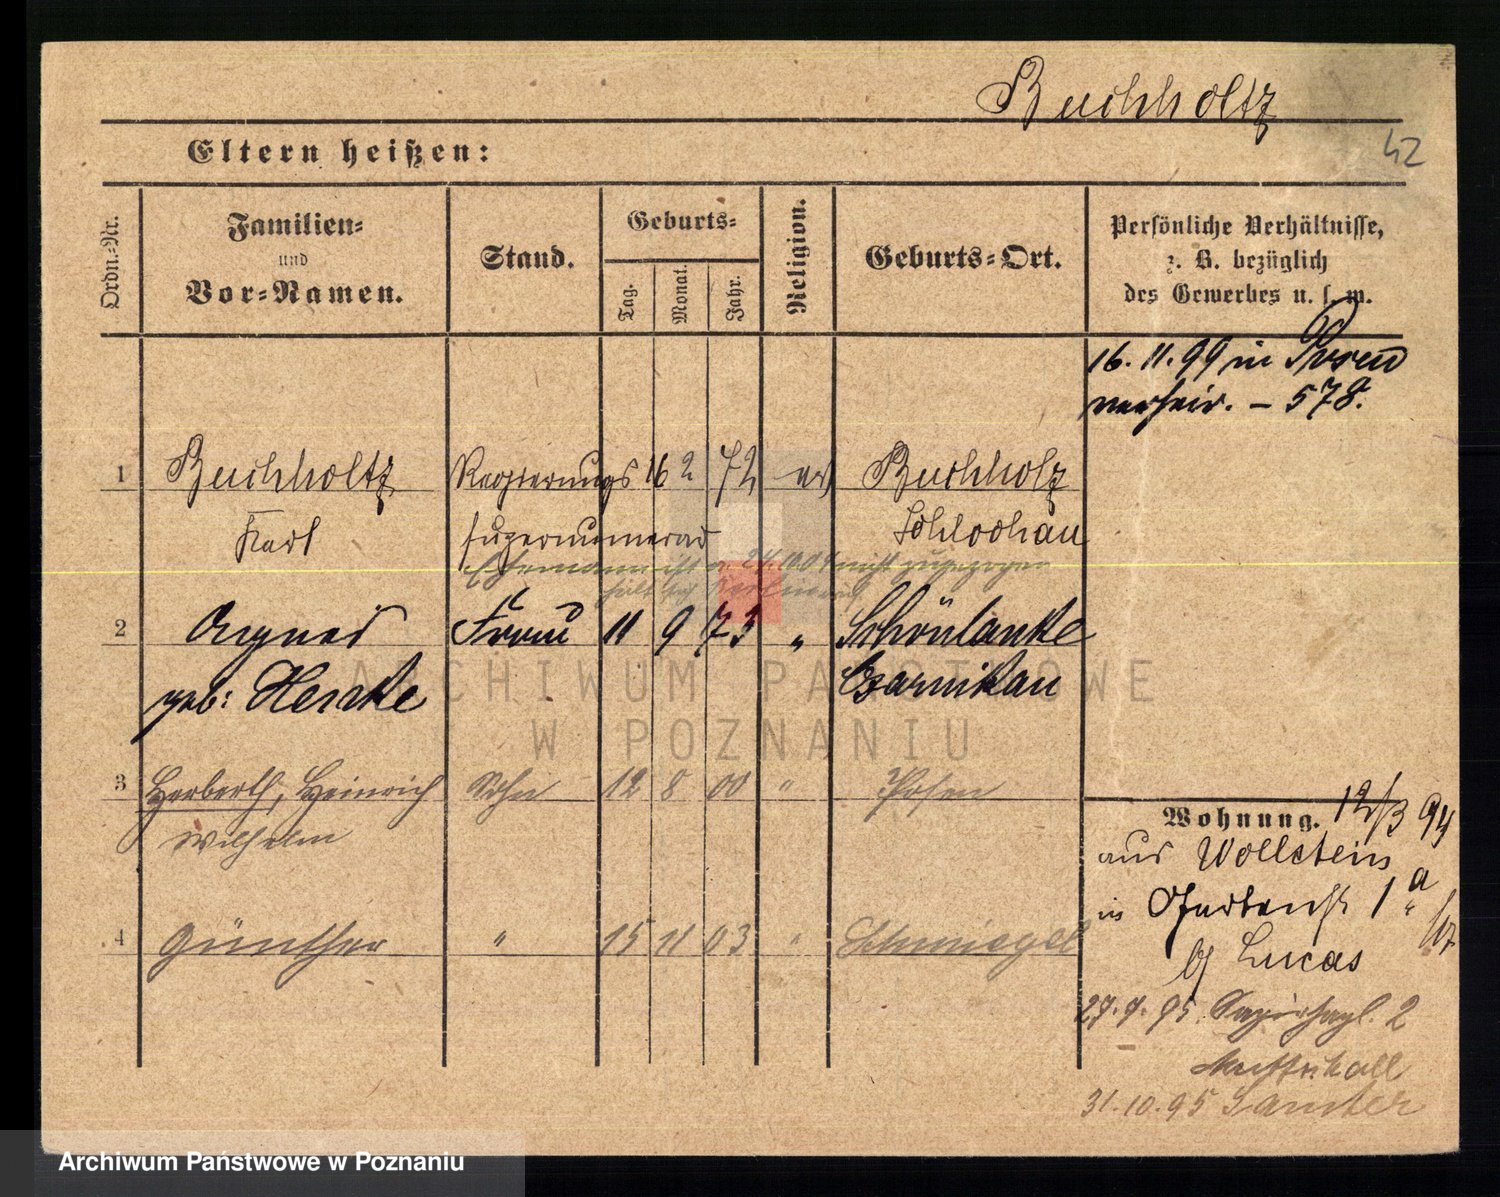 Buchholtz
42
Eltern heißen:
Ordn.-Nr.
Familien-
und
Vor-Namen.
Stand.
Geburts-
Tag.
Monat.
Jahr.
Religion.
Geburts-Ort.
Persönliche Verhältnisse,
z. B. bezüglich
des Gewerbes u. s. w.
16. 11. 99 in Posen
verheir. - 578.
1 Buchholtz Regierungs 16 2 72 ev Buchholz
Karl supernumerar Schlochau
Ehemann ist nicht zugezogen
2 Agnes Frau 11 9 73 " Schönlanke
geb: Henke Czarnikau
ARCHIWUM PAŃSTWOWE
W POZNANIU
3 Herberth, Heinrich Sohn 12 8 00 " Posen
Wilhelm
4 Günther " 15 11 03 " Schmiegel
Wohnung. 12/3 94
aus Wollstein
in 1a
b/ Lucas
27.9.95 2
31.10.95 Samter
Archiwum Państwowe w Poznaniu